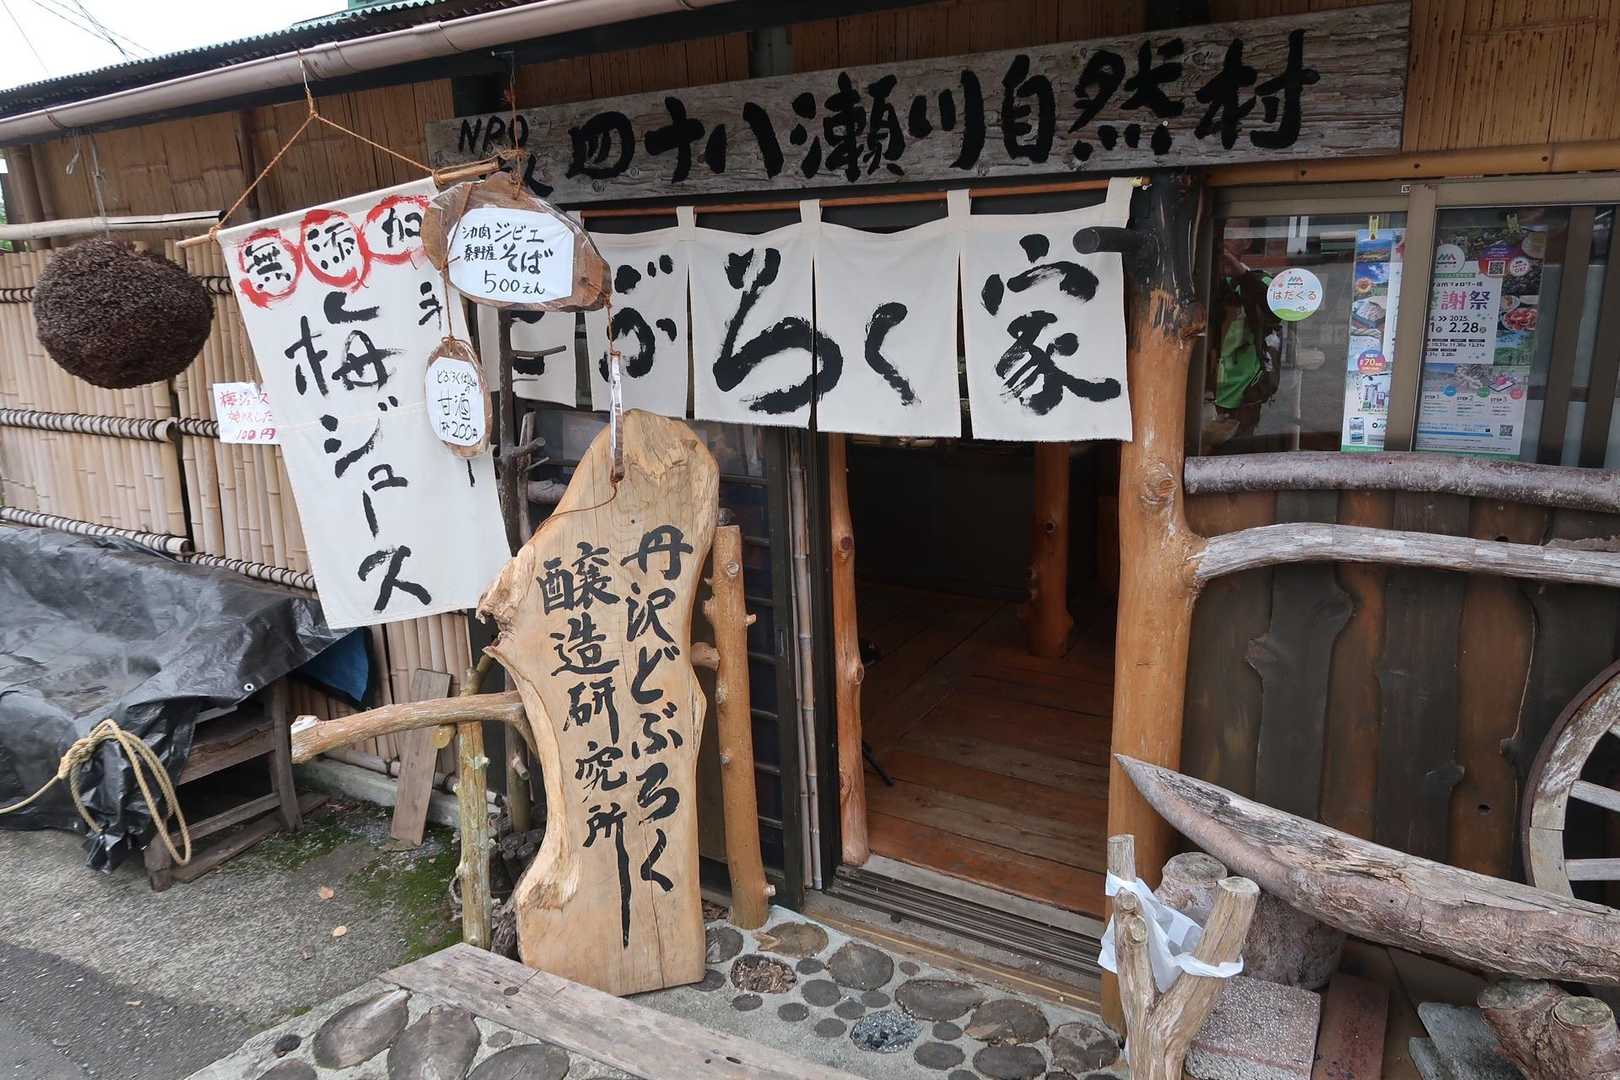 NPO 四十八瀬川自然村
どぶろく家
無添加
手
梅ジュース
シカ肉ジビエ
秦野産そば
500えん
どぶろくばぁ
甘酒
200円
梅ジュース
100円
丹沢どぶろく
醸造研究所
はだくる
謝祭
2025.
2.28